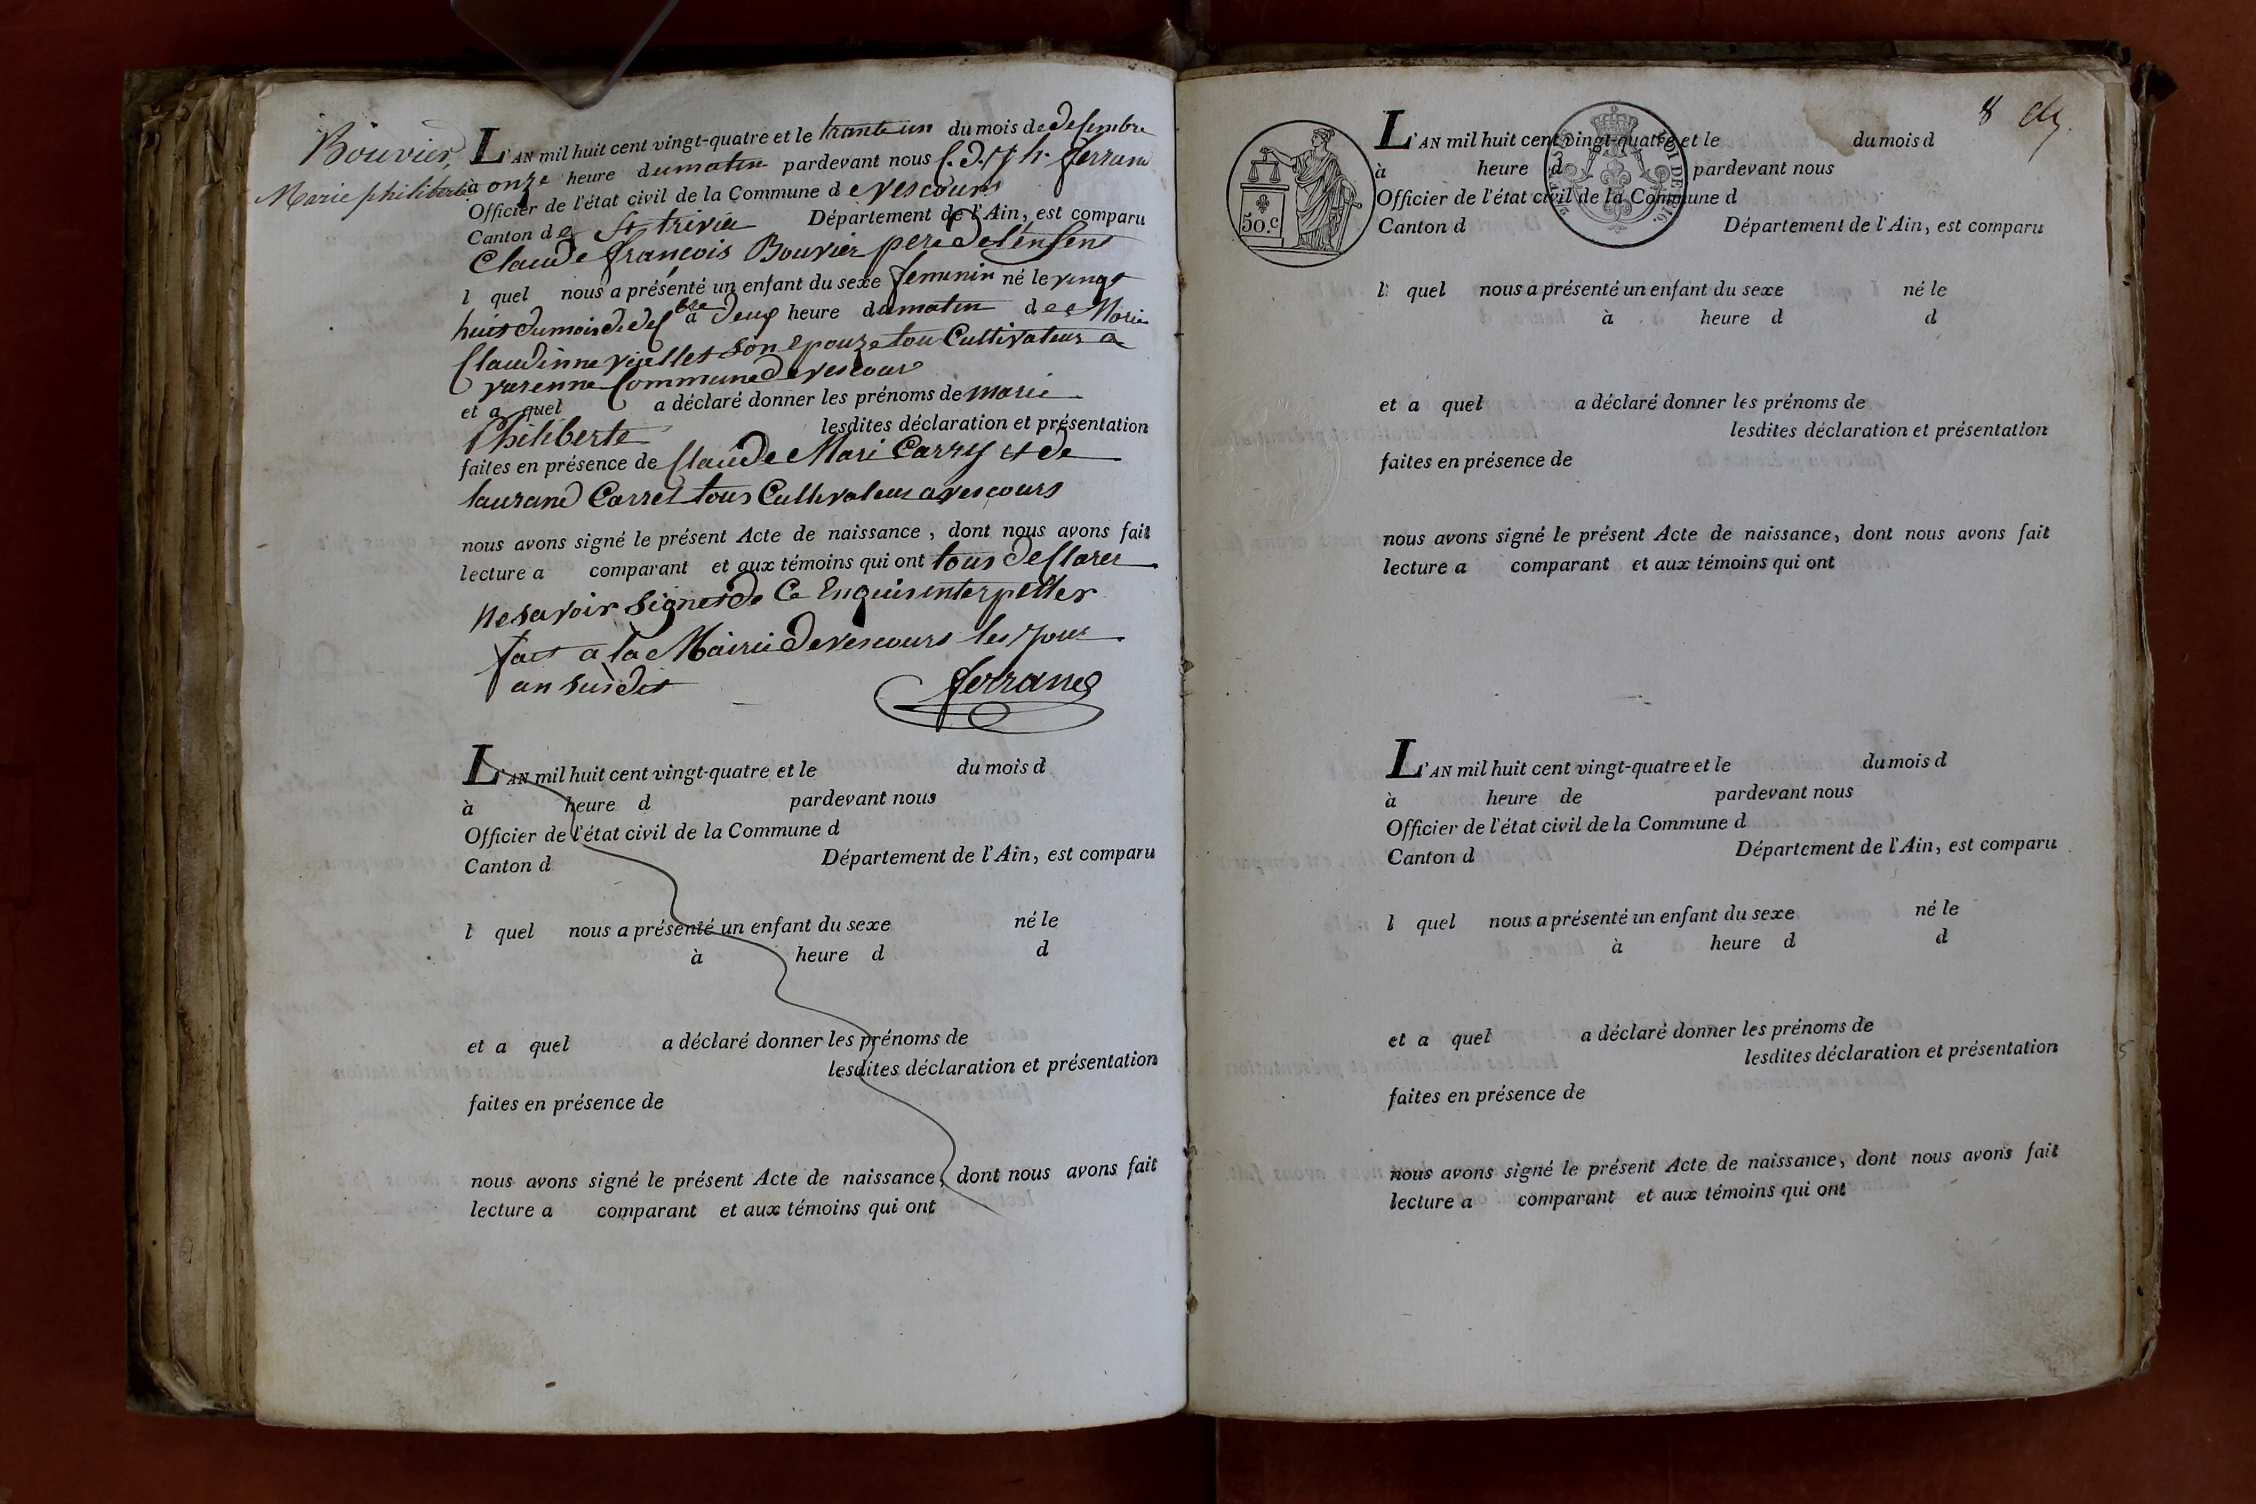 Bouvier
Marie philiberte
L'AN mil huit cent vingt-quatre et le trante un du mois de desembre
à onze heure du matin pardevant nous ferrand
Officier de l'état civil de la Commune de vescours
Canton de St trivié Département de l'Ain, est comparu
Claude françois Bouvier pere de l'enfent
l quel nous a présenté un enfant du sexe femenin né le vingt
huit du mois de desbre à deux heure du matin de Marie
Claudinne vielles son epouze tou Cultivateur a
varenne Commune de vescour
et a quel a déclaré donner les prénoms de marie
Philiberte lesdites déclaration et présentation
faites en présence de Claude Mari Carry et de
laurand Carret tous Cultivateur a vescours
nous avons signé le présent Acte de naissance, dont nous avons fait
lecture a comparant et aux témoins qui ont tous desclarer
ne savoir signer de Ce Enquis interpeller
fait a la Mairie de vescours les jour
an susdit
ferrand
L'AN mil huit cent vingt-quatre et le du mois d
à heure d pardevant nous
Officier de l'état civil de la Commune d
Canton d Département de l'Ain, est comparu
l quel nous a présenté un enfant du sexe né le
à heure d d
et a quel a déclaré donner les prénoms de
lesdites déclaration et présentation
faites en présence de
nous avons signé le présent Acte de naissance, dont nous avons fait
lecture a comparant et aux témoins qui ont
8
50.c
L'AN mil huit cent vingt-quatre et le du mois d
à heure d pardevant nous
Officier de l'état civil de la Commune d
Canton d Département de l'Ain, est comparu
l quel nous a présenté un enfant du sexe né le
à heure d d
et a quel a déclaré donner les prénoms de
lesdites déclaration et présentation
faites en présence de
nous avons signé le présent Acte de naissance, dont nous avons fait
lecture a comparant et aux témoins qui ont
L'AN mil huit cent vingt-quatre et le du mois d
à heure de pardevant nous
Officier de l'état civil de la Commune d
Canton d Département de l'Ain, est comparu
l quel nous a présenté un enfant du sexe né le
à heure d d
et a quel a déclaré donner les prénoms de
lesdites déclaration et présentation
faites en présence de
nous avons signé le présent Acte de naissance, dont nous avons fait
lecture a comparant et aux témoins qui ont